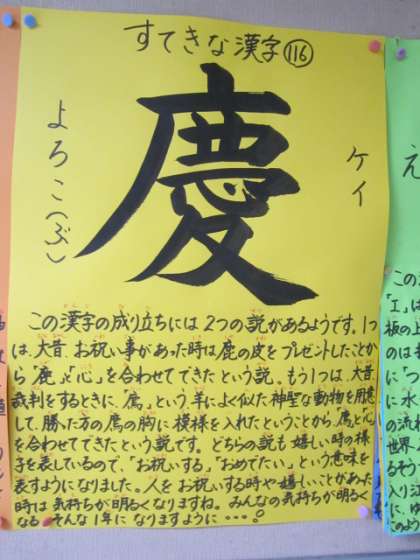 すてきな漢字 116
慶
よろこ(ぶ)
ケイ
この漢字の成り立ちには2つの説があるようです。1つ
は、大昔、お祝い事があった時は鹿の皮をプレゼントしたことか
ら「鹿」と「心」を合わせてできたという説。もう1つは、大昔、
裁判をするときに、「廌」という羊によく似た神聖な動物を用意
して、勝った方の廌の胸に模様を入れたということから「廌」と「心」
を合わせてできたという説です。どちらの説も嬉しい時の様
子を表しているので、「お祝いする」「おめでたい」という意味を
表すようになりました。人をお祝いする時や嬉しいことがあった
時は気持ちが明るくなりますね。みんなの気持ちが明るく
なる、そんな1年になりますように・・・。
え
この
「エ」は
板の上
のは
に「つ
に水
の流
世界
るそう
入り江
に、ゆ
このよう